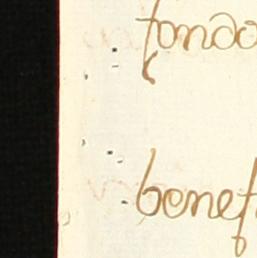 fondo
benef